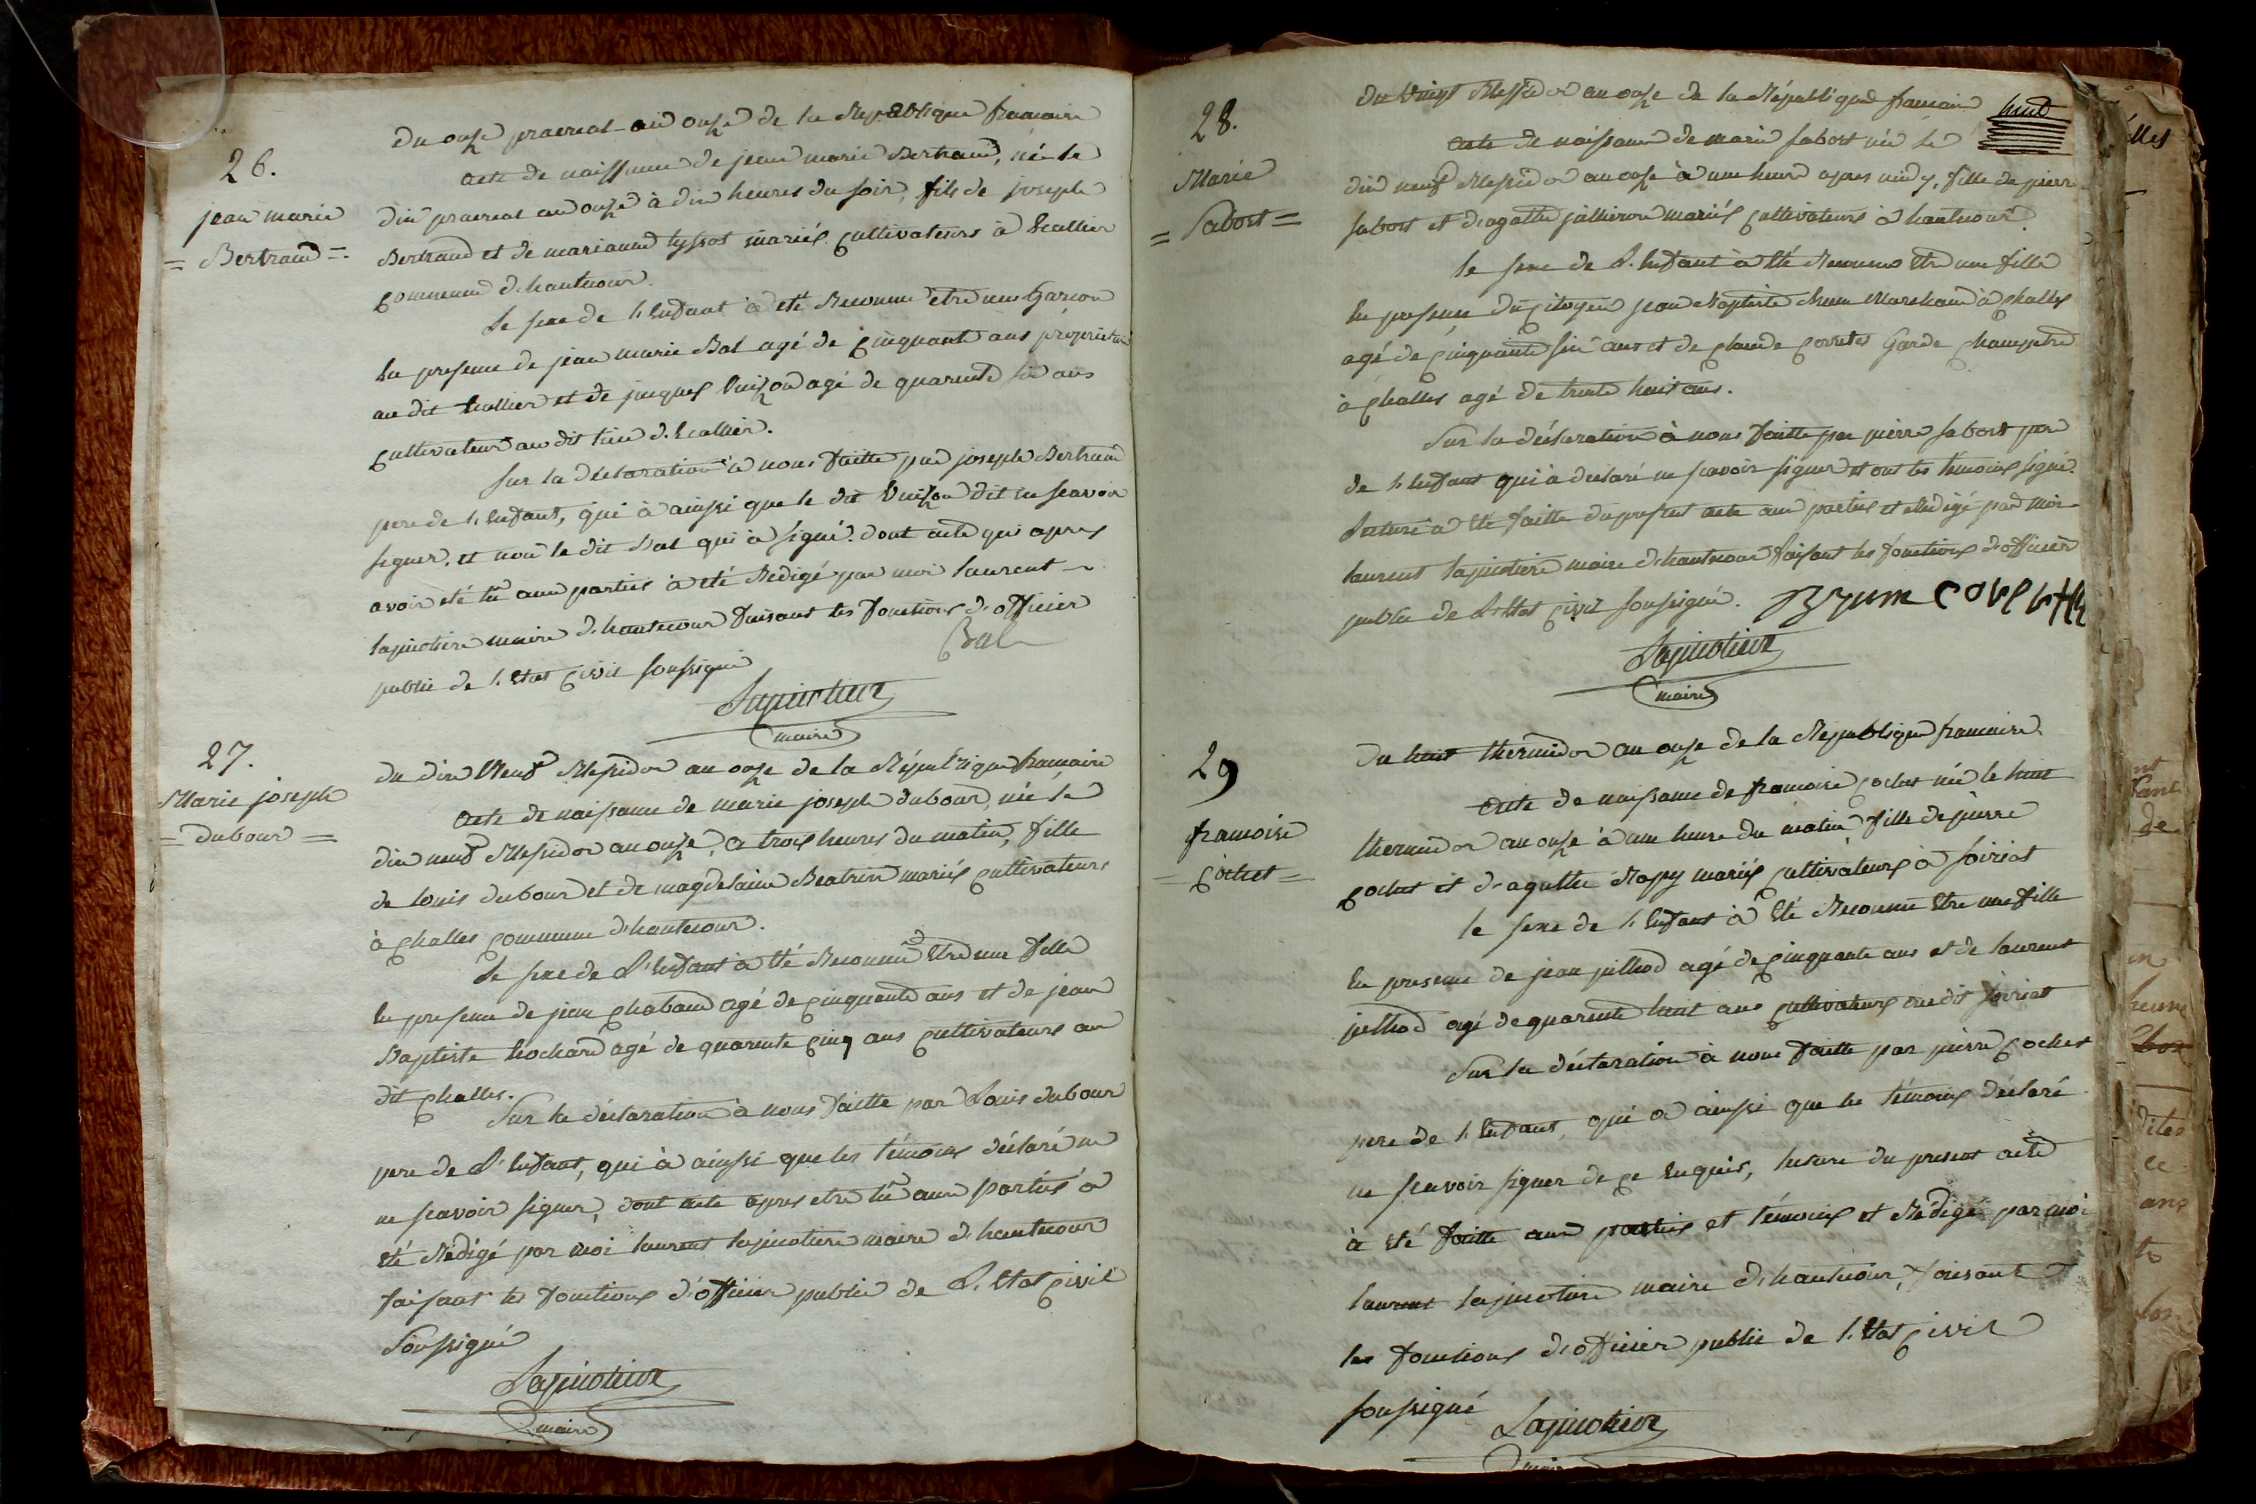 26.
jean marie
= Bertrand =
Du onze prairial an onze de la Republique francaise
Acte de naissance de jean marie Bertrand, né le
dix prairial an onze à dix heures du soir, fils de joseph
Bertrand et de marianne tyssot mariés cultivateurs à Lcallier
commune d'hautecour.
Le sexe de l'Enfant à eté Reconnu être un Garcon
En presence de jean marie Bal agé de cinquante ans proprietaire
au dit Lcallier et de jacques Vuison agé de quarente six ans
cultivateur au dit lieu d'Lcallier.
Sur la declaration à nous faitte par joseph Bertrand
pere de l'Enfant, qui à ainsi que le dit Vuison dit ne scavoir
signer, et non le dit Bal qui à signé. dont acte qui apres
avoir eté lu aux parties à eté Redigé par moi laurent
lapicotiere maire d'hautecour faisant les fonctions d'officier
public de l'Etat civil soussigné
Bal
Lapicotiere
maire
27.
Marie joseph
= dubour =
du dix Neuf Messidor an onze de la République francaise
Acte de naissance de marie joseph dubour, née le
dix neuf Messidor an onze, a trois heures du matin, fille
de louis dubour et de magdelaine Beatrix mariés cultivateurs
à Challes commune d'hautecour.
Le sexe de L'Enfant à Eté Reconnu Etre une fille
En presence de jean Chaband agé de cinquante ans et de jean
Baptiste Lochard agé de quarente cinq ans cultivateurs au
dit Challes.
Sur la déclaration à nous faitte par Louis dubour
pere de L'Enfant, qui à ainsi que les témoins déclaré ne
ne scavoir signer, dont acte apres etre lu aux parties à
Eté Rédigé par moi laurent lapicotiere maire d'hautecour
faisant les fonctions d'officier public de L'Etat Civil
soussigné
Lapicotiere
maire
28.
Marie
= Sabort =
du vingt Messidor an onze de la République francaise
Acte de naissance de marie sabort née le
dix neuf Messidor an onze à une heure apres midy, fille de pierre
sabort et d'agathe mariés cultivateurs à hautecour.
le sexe de L'Enfant à Eté Reconnu Etre une fille
En presence du Citoyen jean Baptiste Marchand à Challes
agé de cinquante six ans et de Claude Garde Champetre
à Challes agé de trente huit ans.
Sur la déclaration à nous faitte par pierre sabort pere
de l'Enfant qui à declaré ne scavoir signer et ont les témoins signé.
Lecture à Eté faitte du present acte aux parties et Redigé par Moi
laurent lapicotiere maire d'hautecour faisant les fonctions d'officier
public de L'Etat Civil soussigné.
Lapicotiere
maire
29
francoise
= Cochet =
Du huit thermidor an onze de la République francaise.
Acte de naissance de francoise Cochet née le huit
thermidor an onze à une heure du matin fille de pierre
Cochet et d'agathe Rapy mariés cultivateurs à soiriat
le sexe de l'Enfant à Eté Reconnu Etre une fille
En presence de jean pillhod agé de cinquante ans et de laurent
pillhod agé de quarente huit ans cultivateurs au dit soiriat
Sur la déclaration à nous faitte par pierre Cochet
pere de l'Enfant, qui a ainsi que les témoins déclaré
ne scavoir signer de ce Enquis, lecture du present acte
à Eté faitte aux parties et témoins et Redigé par moi
laurent lapicotiere maire d'hautecour, faisant
les fonctions d'officier public de l'Etat Civil
soussigné
Lapicotiere
maire